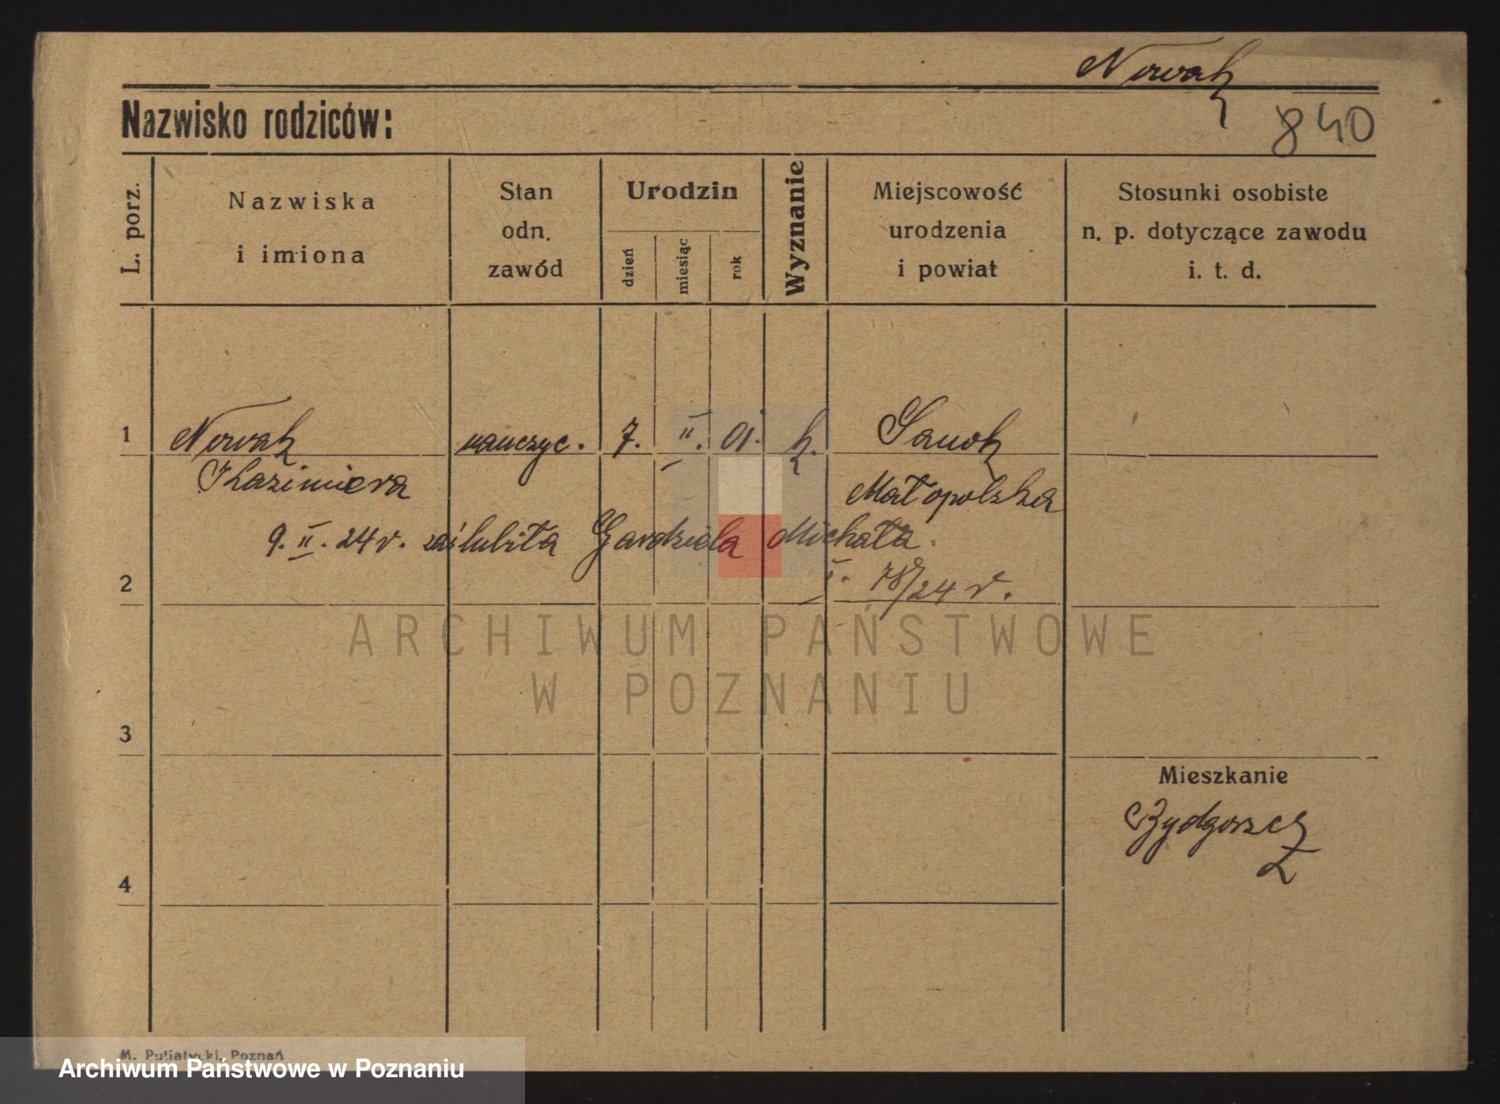 Nowak
Nazwisko rodziców:
840
L. porz.
Nazwiska
i imiona
Stan
odn.
zawód
Urodzin
dzień
miesiąc
rok
Wyznanie
Miejscowość
urodzenia
i powiat
Stosunki osobiste
n. p. dotyczące zawodu
i. t. d.
1
Nowak nauczyc. 7. II. 01. k. Sanok
Kazimiera Małopolska
9. II. 24 r. zaślubiła Gardziela Michała.
2
I. 78/24 r.
ARCHIWUM PAŃSTWOWE
W POZNANIU
3
Mieszkanie
Bydgoszcz
4
M. Putiatycki, Poznań
Archiwum Państwowe w Poznaniu